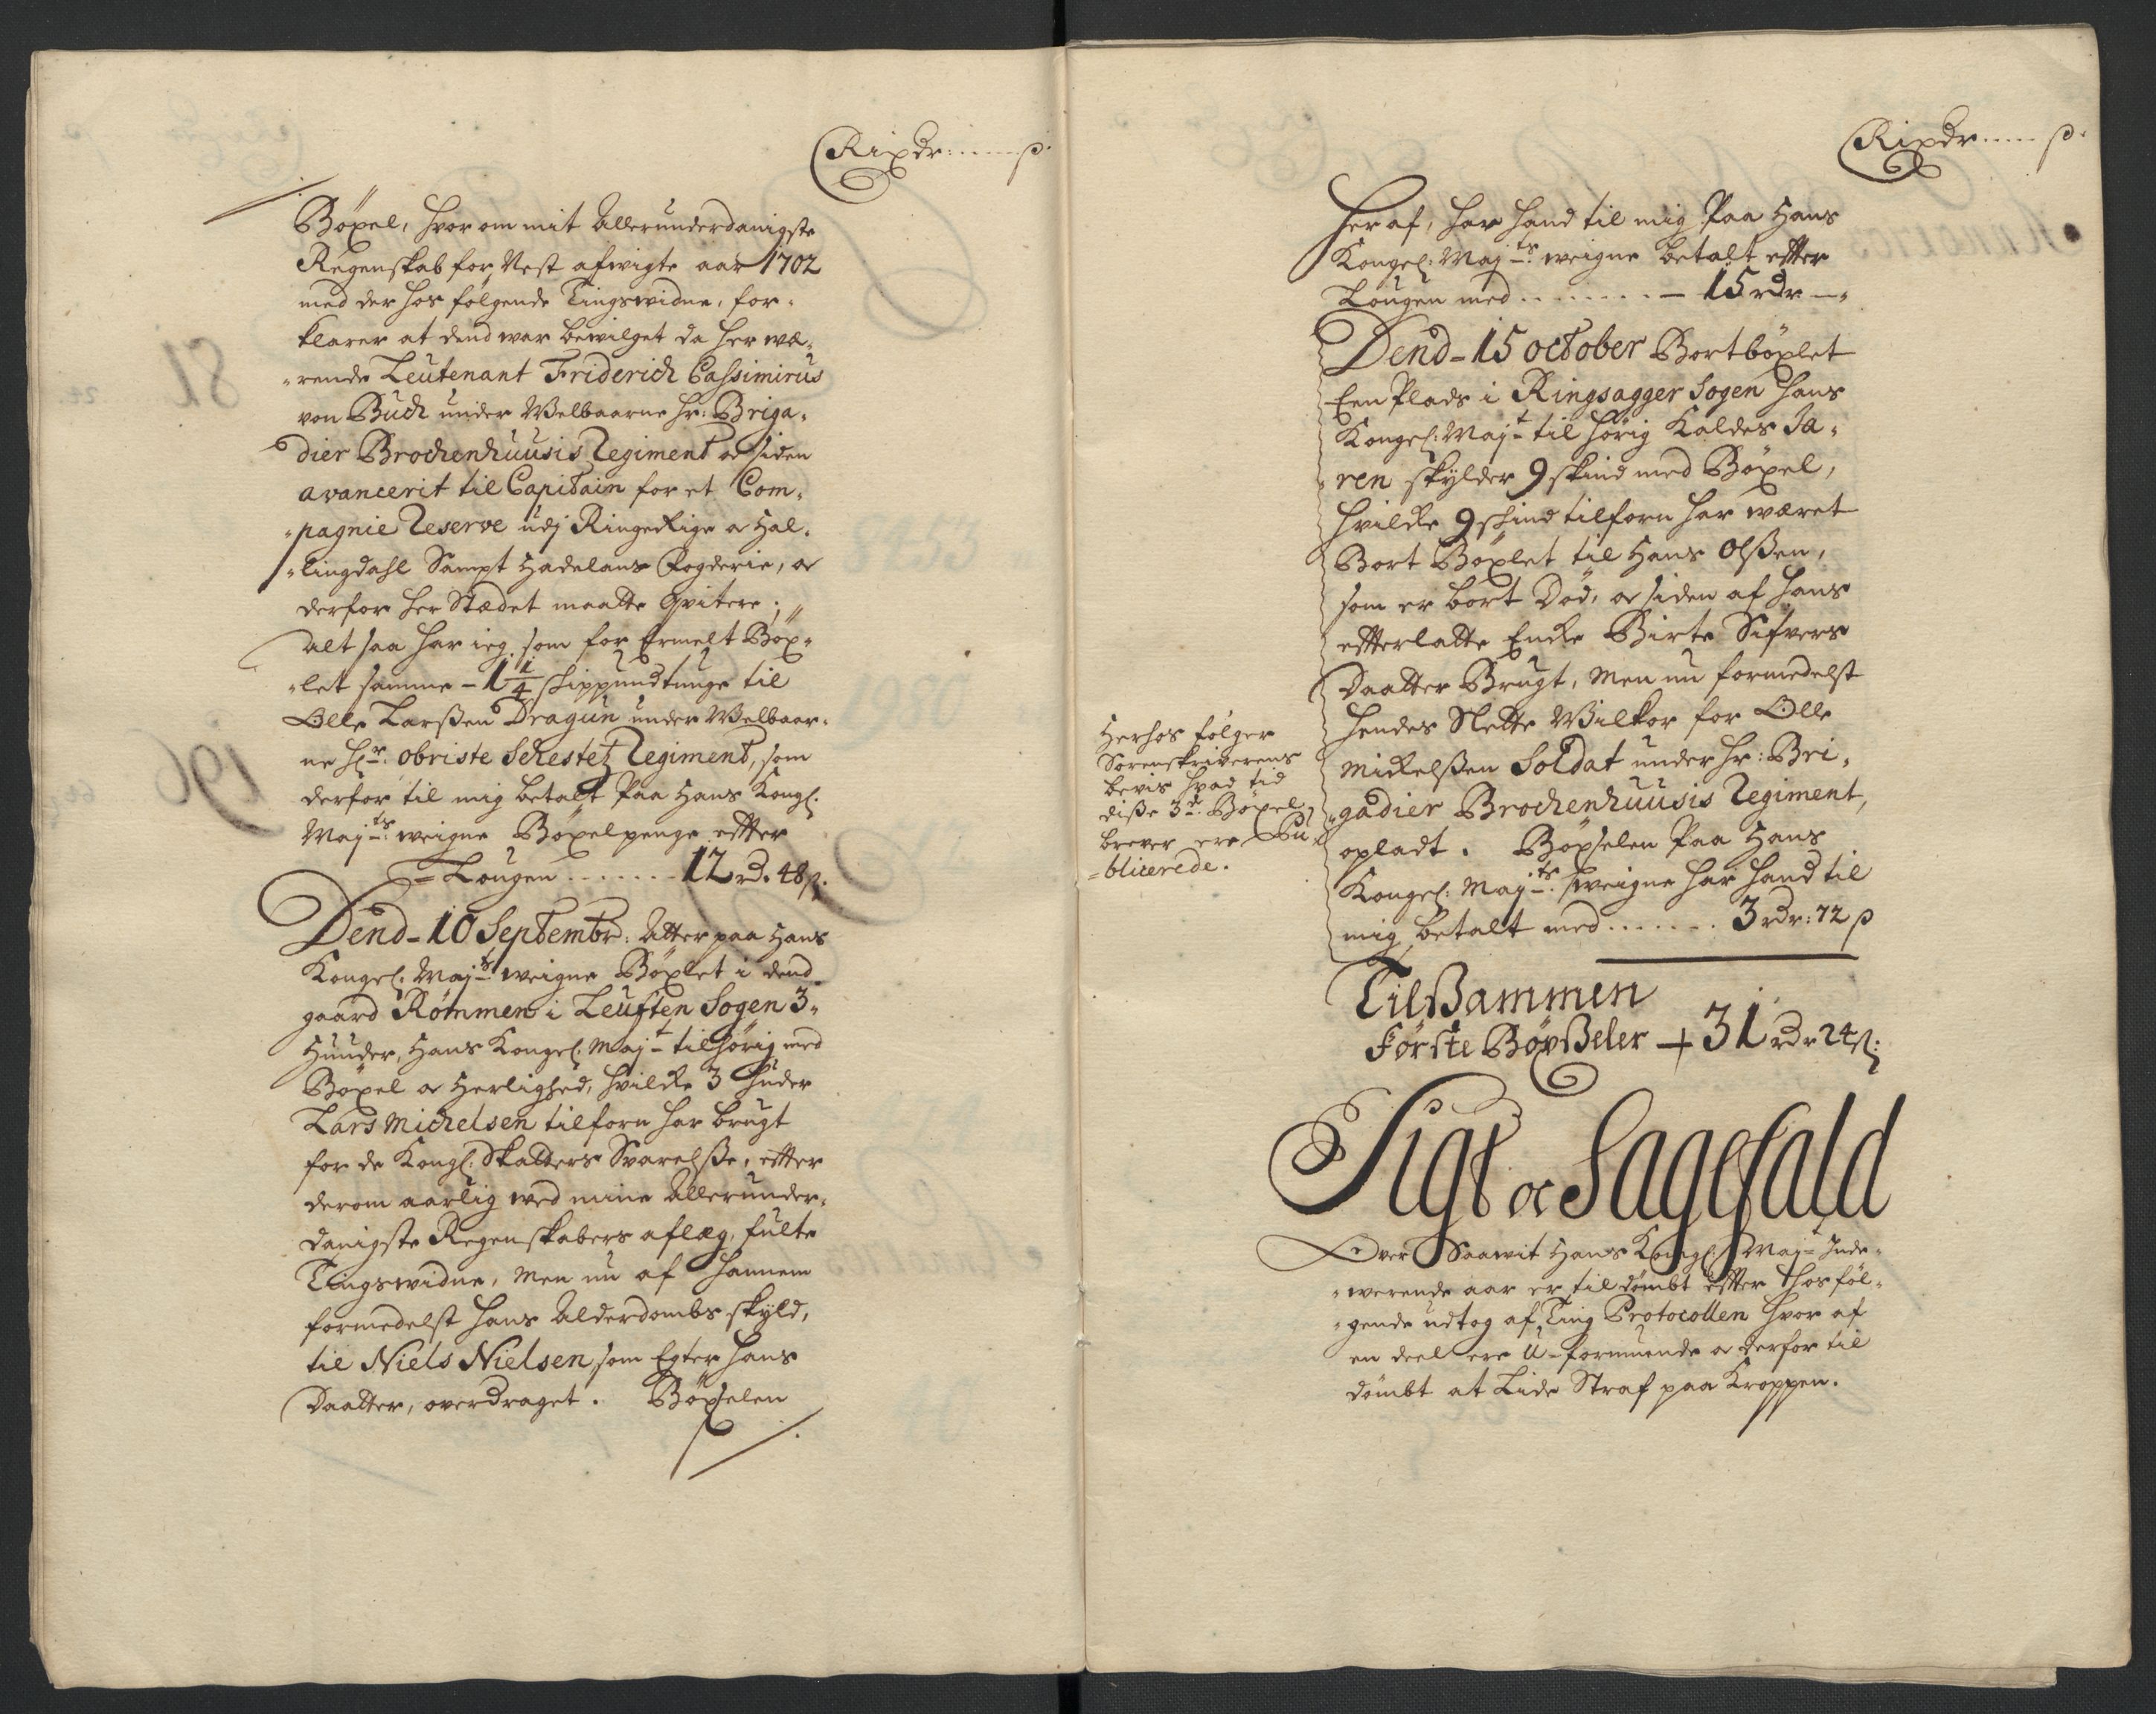 Rixdr: ..... ß.
Böxel, hvor om mit Allerunderdanigste
Regenskab for Nest afvigte aar 1702
med der hos følgende Tingswidne, for-
klarer at dend war bewilget da her wæ-
-rende Leutenant Friderich Cassimirus
von Buch under Welbaarne Hr: Briga-
dier Brochenhuusis Regiment oc siden
avancerit til Capitain for et Com-
-pagnie Reserve udj RingeRige oc Hal-
-lingdahl Sampt Hadelans Fogderie, oc
derfor her Stædet maatte Qvitere;
Alt saa har ieg som for Ermelt Böx-
-let samme - 1 1/4 skippundtunge til
Olle Larßen Dragun under Welbaar-
ne Hr: obriste Schestetz Regiment, som
derfor til mig betalt Paa Hans Kongl.
Maj-ts: weigne Böxelpenge effter
= Lougen ....... 12 rd. 48 ß.
Dend - 10 Septembr: Atter paa Hans
Kongel: Maj-ts: weigne Böxlet i dend
gaard Rommen i Leuften Sogen 3-
Huuder, Hans Kongel: Maj-t tilhørig med
Böxel oc Herlighed, hvilke 3 Huder
Lars Michelsen tilforn har brugt
for de Kongl: Skatters Svarelße, effter
derom aarlig wed mine Allerunder-
danigste Regenskabers aflæg, fulte
Tingswidne, Men nu af hannem
formedelst hans Alderdombs skyld,
til Niels Nielsen, som Egter hans
Daatter, overdraget. Böxelen
Rixdr ..... ß.
Her af, har hand til mig Paa Hans
Kongel: Maj-ts: weigne betalt effter
Lougen med ........ - 15 rdr -
Dend - 15 october Bortböxlet
Een Plads i Ringsagger Sogen Hans
Kongel: Maj-t til hörig Kaldes Ja-
-ren skylder 9 skind med Böxel,
hvilke 9 skind tilforn har wæret
Bort Böxlet til Hans Olßen,
som er bort Död, oc siden af hans
effterlatte Encke Birte Sifvers
Daatter Brugt, Men nu formedelst
hendes Slette Wilkor for Olle
Mickelßen Soldat under Hr: Bri-
-gadier Brochenhuusis Regiment,
opladt. Böxelen Paa Hans
Kongel: Maj-ts: weigne har hand til
mig betalt med ....... 3 rdr: 72 ß
Herhos følger
Sorenskriverens
bevis hvad tid
diße 3de: Böxel
brever ere Pu-
=blicerede.
Tilßammen
Første Böxßeler + 31 rdr 24 ß:
Sigt oc Sagefald
Over Saawit Hans Kongl: Maj-t Inde-
-werende aar er til dömbt effter hos föl-
-gende udtog af Ting Protocollen hvor af
en deel ere U-formuende oc derfor til
dömbt at Lide Straf paa Kroppen.